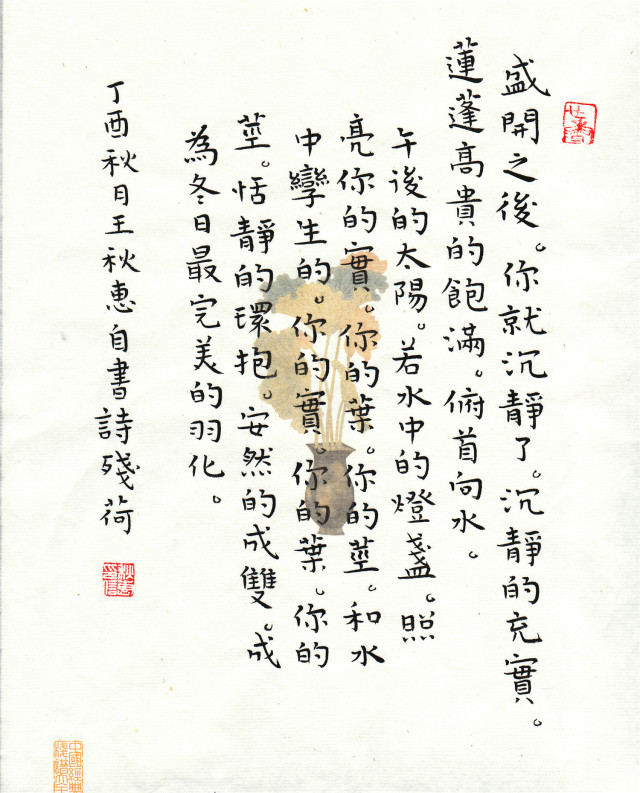 盛開之後。你就沉靜了。沉靜的充實。
蓮蓬高貴的飽滿。俯首向水。
午後的太陽。若水中的燈盞。照
亮你的實。你的葉。你的莖。和水
中孿生的。你的實。你的葉。你的
莖。恬靜的環抱。安然的成雙。成
為冬日最完美的羽化。
丁酉秋月王秋惠自書詩殘荷